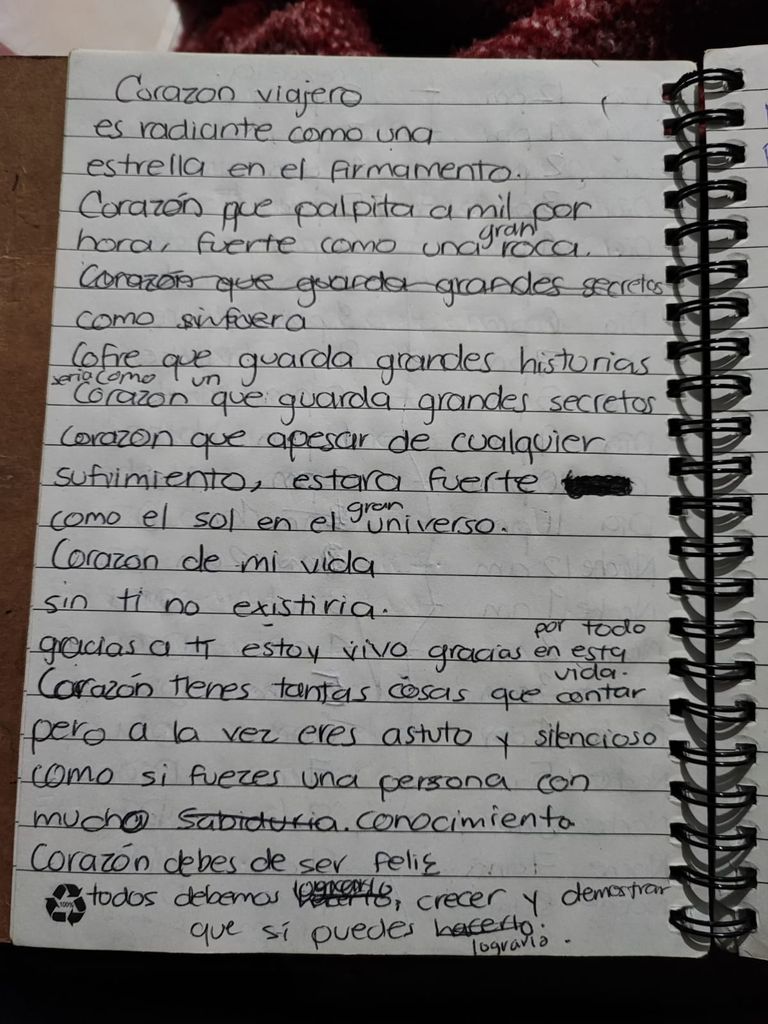 Corazon viajero
es radiante como una
estrella en el firmamento.
Corazón que palpita a mil por
hora, fuerte como una gran roca.
Corazón que guarda grandes secretos
como sinfuera
Cofre que guarda grandes historias
seria como un
Corazon que guarda grandes secretos
Corazon que apesar de cualquier
sufrimiento, estara fuerte
como el sol en el gran universo.
Corazon de mi vida
sin ti no existiria.
gracias a ti estoy vivo gracias por todo
en esta vida.
Corazón tienes tantas cosas que contar
pero a la vez eres astuto y silencioso
como si fuezes una persona con
mucho Sabiduria. conocimiento
Corazón debes de ser feliz
100%
todos debemos, crecer y demostrar
que si puedes hacerlo.
lograrlo.